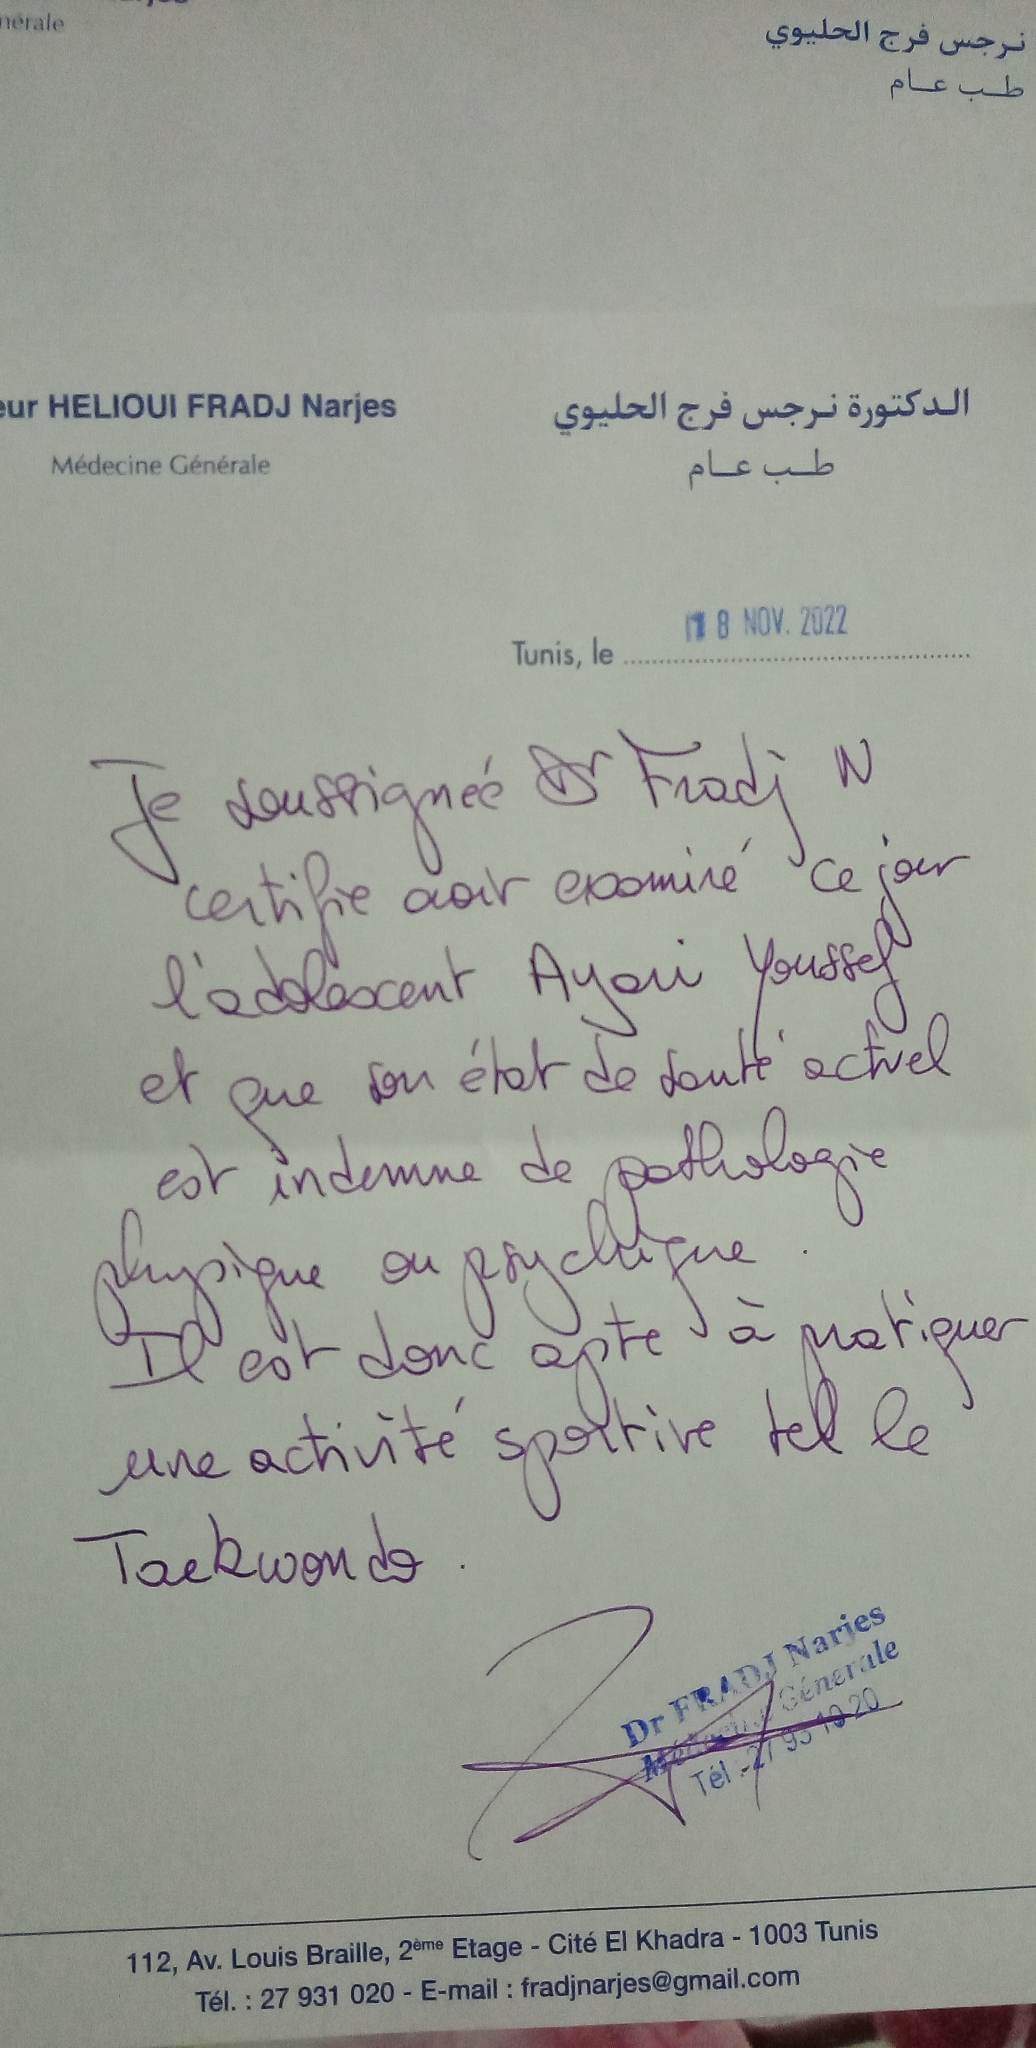 nérale
نرجس فرج الحليوي
طب عام
eur HELIOUI FRADJ Narjes
الدكتورة نرجس فرج الحليوي
Médecine Générale
طب عام
Tunis, le 18 NOV. 2022
Je soussignée Dr Fradj N
certifie avoir examiné ce jour
l'adolescent Ayari Youssef
et que son état de santé actuel
est indemne de pathologie
physique ou psychique.
Il est donc apte à pratiquer
une activité sportive tel le
Taekwondo.
Dr FRADJ Narjes
Médecine Générale
Tél : 27 93 10 20
112, Av. Louis Braille, 2ème Etage - Cité El Khadra - 1003 Tunis
Tél. : 27 931 020 - E-mail : fradjnarjes@gmail.com